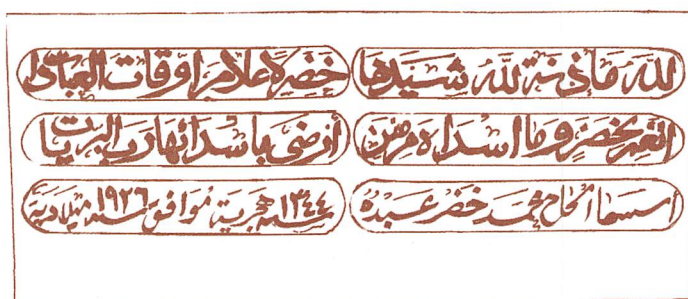 لله مأذنة لله شيدها خضر لإعلام أوقات العبادا
انعم بخضر وما اسداه من منن أرضى باسدائها رب البرايا
اسسها الحاج محمد خضر عبده سنه ١٣٤٤ هجرية موافق سنه ١٩٢٦ ميلادية